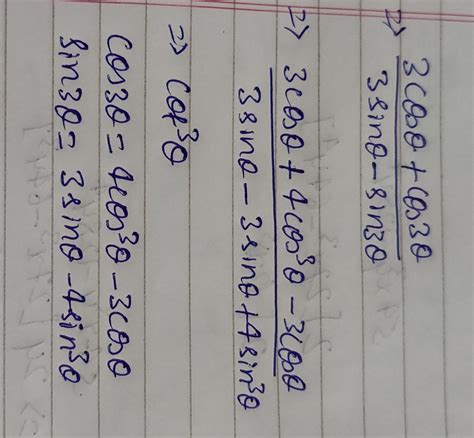 => 3cosθ + cos3θ / 3sinθ - sin3θ
=> 3cosθ + 4cos³θ - 3cosθ / 3sinθ - 3sinθ + 4sin³θ
=> cot³θ
cos3θ = 4cos³θ - 3cosθ
sin3θ = 3sinθ - 4sin³θ